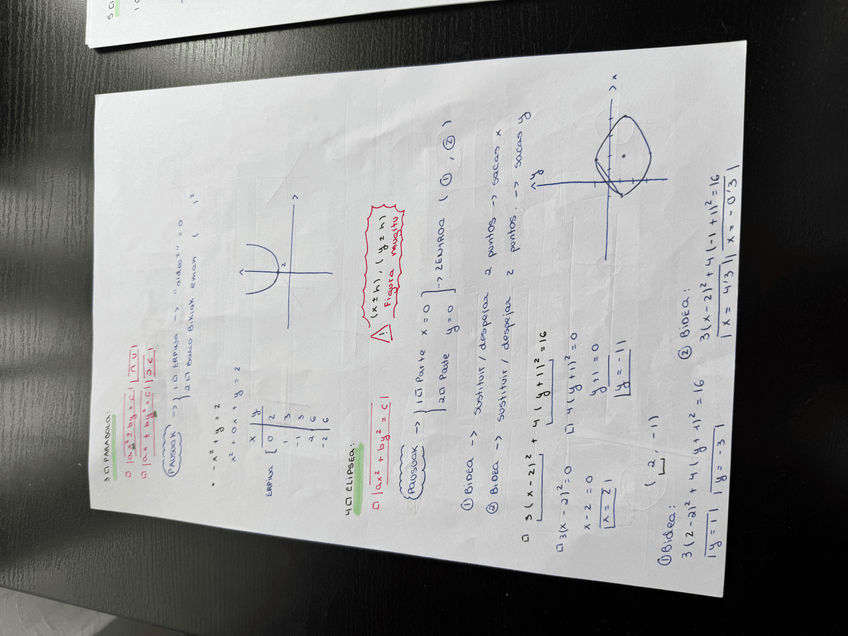 3 PARABOLA:
ax² ± by = c | ∩ U
ax ± by² = c | ⊃ C
PAUSOAK → 1 ERPINA → "aldex" = 0
2 Balio Batzuk eman ( )²
-x² + y = 2
x² + 0x + y = 2
x y
ERPINA [ 0 2
1 3
-1 3
2 6
-2 6
2
4 ELIPSEA:
ax² + by² = c
(x ± h), (y ± h)
Figura mugitu
PAUSOAK → 1 Parte x = 0
2 Parte y = 0 → ZENTROA (①, ②)
① BIDEA → sustituir / despejar 2 puntos → sacas x
② BIDEA → sustituir / despejar 2 puntos → sacas y
3(x-2)² + 4(y+1)² = 16
3(x-2)² = 0
4(y+1)² = 0
x-2 = 0
y+1 = 0
x = 2
y = -1
(2, -1)
y
x
① Bidea:
3(2-2)² + 4(y+1)² = 16
y = 1 | y = -3
② BIDEA:
3(x-2)² + 4(-1+1)² = 16
x = 4'3 | x = -0'3